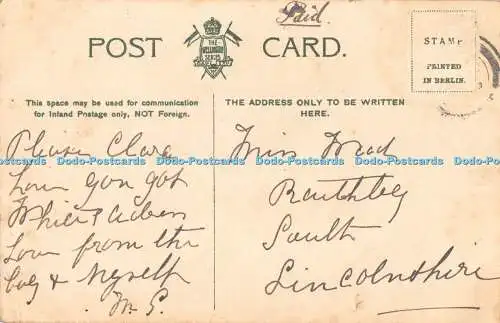 Paid.
POST CARD.
THE WELLINGTON SERIES
STAMP
PRINTED
IN BERLIN.
This space may be used for communication
for Inland Postage only, NOT Foreign.
THE ADDRESS ONLY TO BE WRITTEN
HERE.
Please Clara
have you got
Love from the
boy & Myself
M. S.
Miss
Raithby
Louth
Lincolnshire
Dodo-Postcards Dodo-Postcards Dodo-Postcards Dodo-Postcards Dodo-Postcards